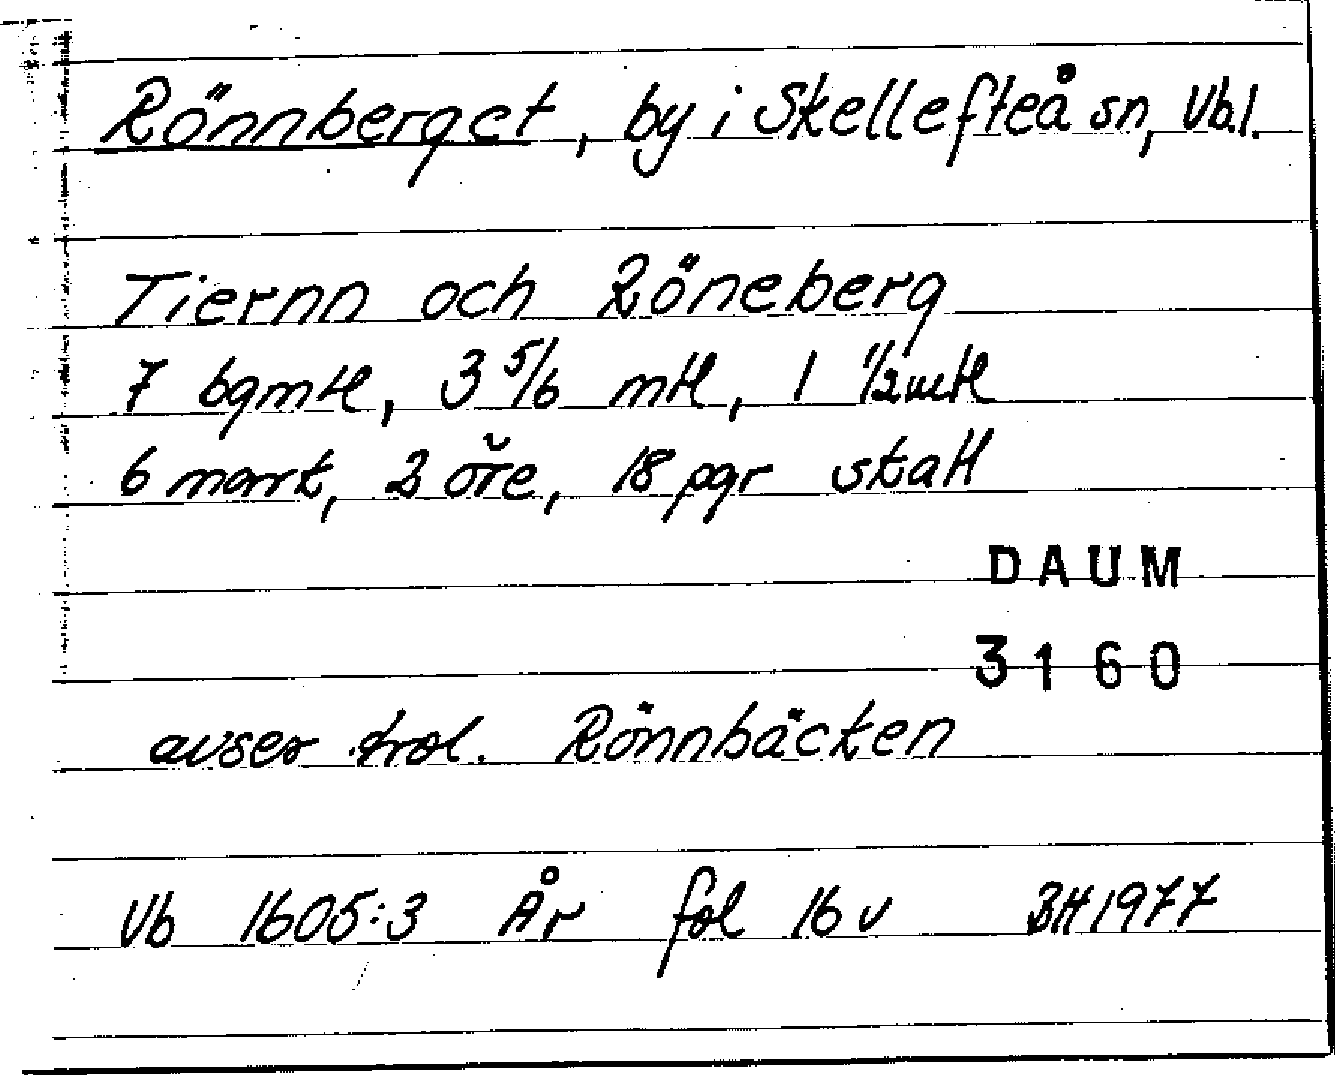 Rönnberget, by i Skellefteå sn, Vb.l.
Tiernn och Röneberg
7 bgmtl, 3 5/6 mtl, 1 1/2 mtl
6 mark, 2 öre, 18 pgr skatt
DAUM
3160
avser trol. Rönnbäcken
Vb 1605:3 År fol 16 v BH 1977